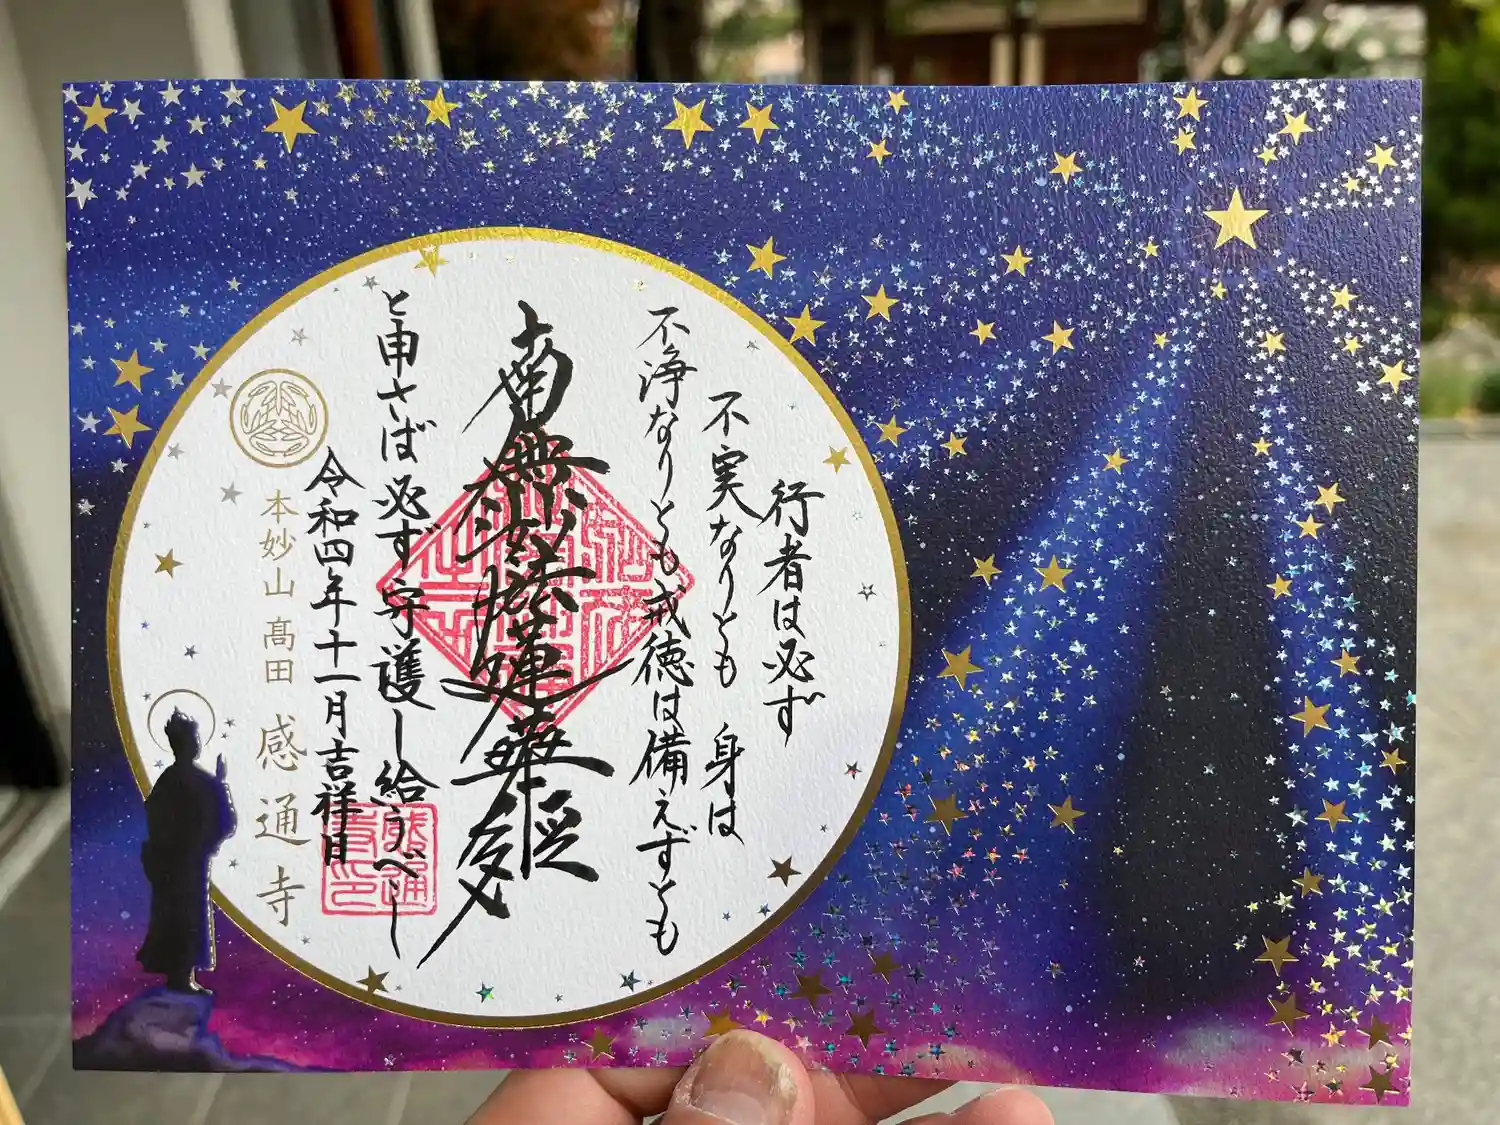 行者は必ず
不実なりとも 身は
不浄なりとも戒徳は備えずとも
南無妙法蓮華経
と申さば必ず守護し給うべし
令和四年十一月吉祥日
本妙山 髙田 感通寺